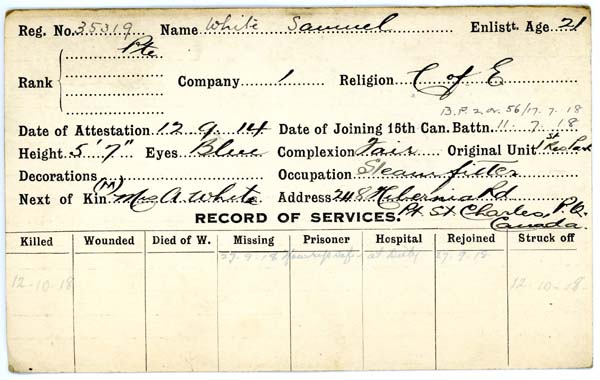 Reg. No. 35319 Name White Samuel Enlistt. Age 21
Pte
Rank Company 1 Religion C of E
B.P. 2 or. 56/17.7.18
Date of Attestation 12 9 14 Date of Joining 15th Can. Battn. 11. 7. 18
Height 5' 7" Eyes Blue Complexion Fair Original Unit 1st Res Park
Decorations Occupation Steam fitter
Next of Kin (M) Mrs A. White Address 248 Hibernia Rd
RECORD OF SERVICES. Pt St Charles, P.Q.
Canada.
Killed Wounded Died of W. Missing Prisoner Hospital Rejoined Struck off
27-9-18 now rep safe & at duty 27-9-18
12-10-18 12-10-18